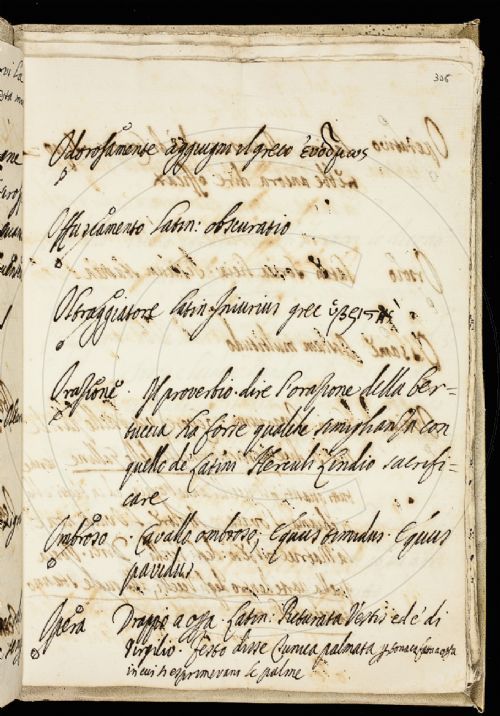 306
Odorosamente aggiugni il greco εὐόδμως
Offuscamento Latin: obscuratio
Oltraggiatore Latin. Iniurius grec ὑβριστής
Orazione. Il proverbio. dire l'orazione della ber-
tuccia ha forse qualche simiglianza con
quello de Latini Herculi Lindio sacrifi-
care
Ombroso. Cavallo ombroso; Equus timidus. Equus
pavidus
Opera Drappo a opa. Latin: Picturata Vestis ed è di
Virgilio. Festo disse Tunica palmata
in cui si esprimevano le palme